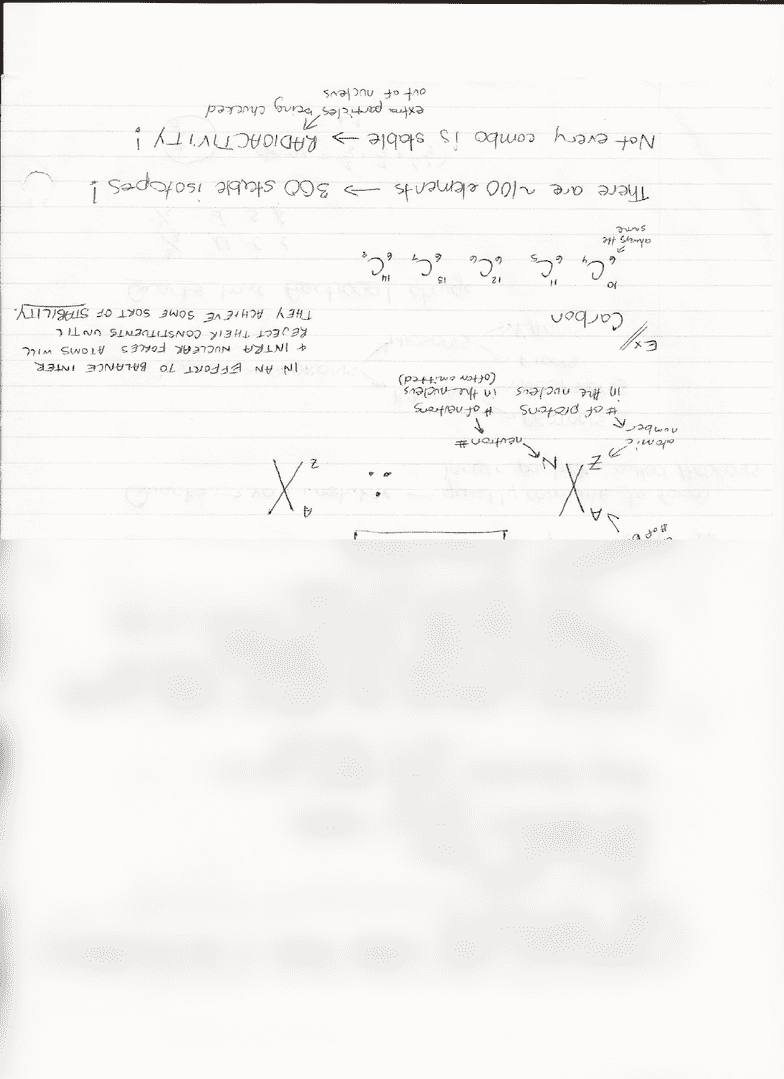 A
X N
Z
∴
A
X
Z
atomic number
neutron #
# of protons in the nucleus
# of neutrons in the nucleus
(often omitted)
IN AN EFFORT TO BALANCE INTER
& INTRA NUCLEAR FORCES ATOMS WILL
REJECT THEIR CONSTITUENTS UNTIL
THEY ACHIEVE SOME SORT OF STABILITY.
Ex// Carbon
10 11 12 13 14
6C4 6C5 6C6 6C7 6C8
always the same
There are ~100 elements → 300 stable isotopes!
Not every combo is stable → RADIOACTIVITY!
extra particles being chucked
out of nucleus